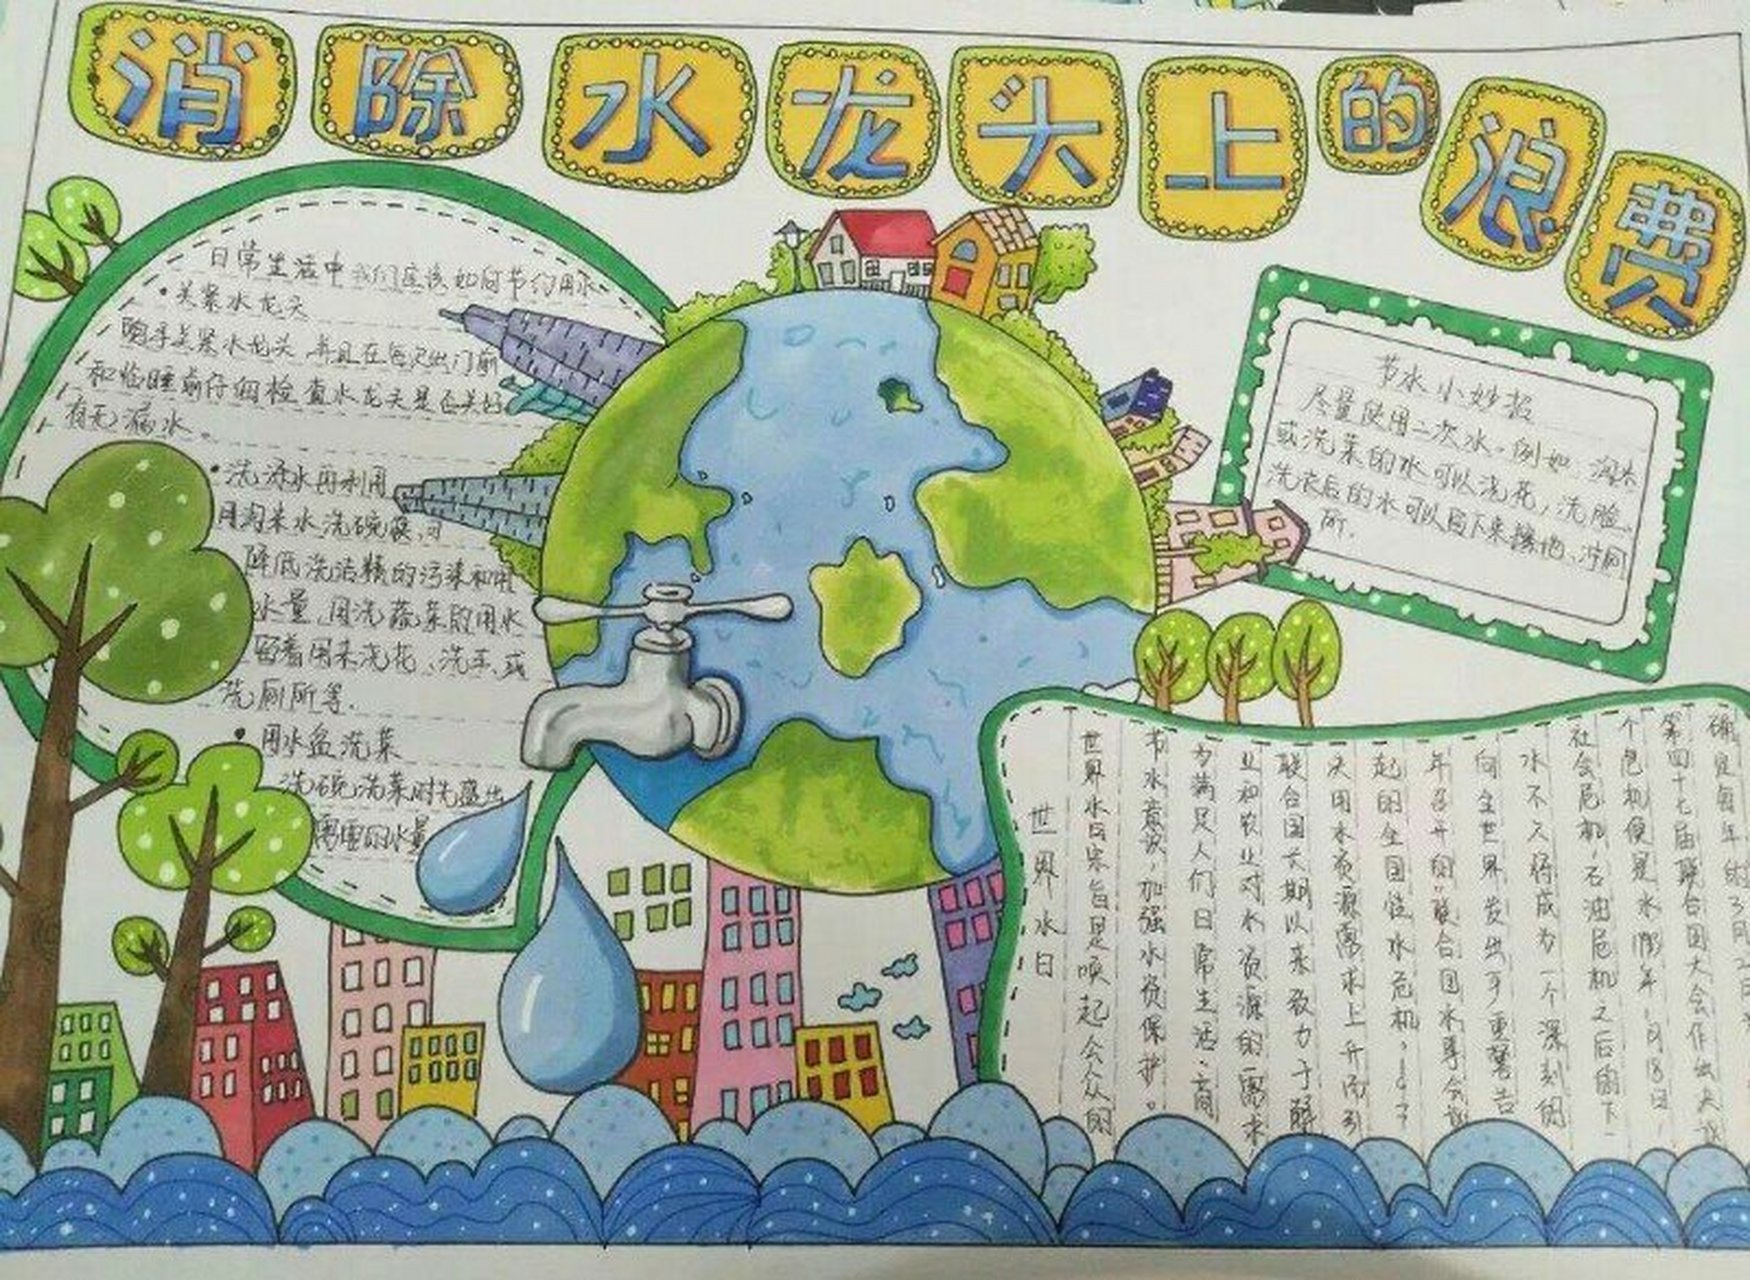 消除水龙头上的浪费
日常生活中我们应该如何节约用水
·关紧水龙头
随手关紧水龙头,并且在每次出门前
和临睡前仔细检查水龙头是否关好
有无漏水。
·洗涤水再利用
用淘米水洗碗筷,可
降低洗洁精的污染和用
水量,用洗蔬菜的用水
留着用来浇花、洗手、或
洗厕所等.
·用水盆洗菜
洗碗洗菜时先盛出
需要的水量
节水小妙招
尽量使用二次水。例如、淘米
或洗菜的水可以浇花,洗脸、
洗衣后的水可以留下来擦地、冲厕
所.
世界水日
世界水日宗旨是唤起公众的
节水意识,加强水资保护。
为满足人们日常生活、商
业和农业对水资源的需求
联合国长期以来致力于解
决用水资源需求上升而引
起的全国性水危机。
年召开的联合国水事会议
向全世界发出严重警告
水不久将成为一个深刻的
社会危机,石油危机之后的下一
个危机便是水 年1月18日,
第四十七届联合国大会作出决议
确定每年的3月2日为